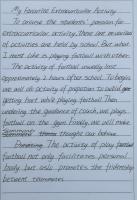 My Favorite Extracurricular Activity
To enrich the students' passion for
extracurricular activity, there are varities
of activities are held by school. But what
I most like is playing football with other.
The activity of football usually last
approximately 2 hours after school. To begin,
we will do activity of preparation to avoid
getting hurt while playing football. Then
under the guidance of coach, we plays
football on the gym. Finally, we will make
summary thought our
The activity of play football
football not only facilitates personal
body but also promotes the friendship
between teammates.